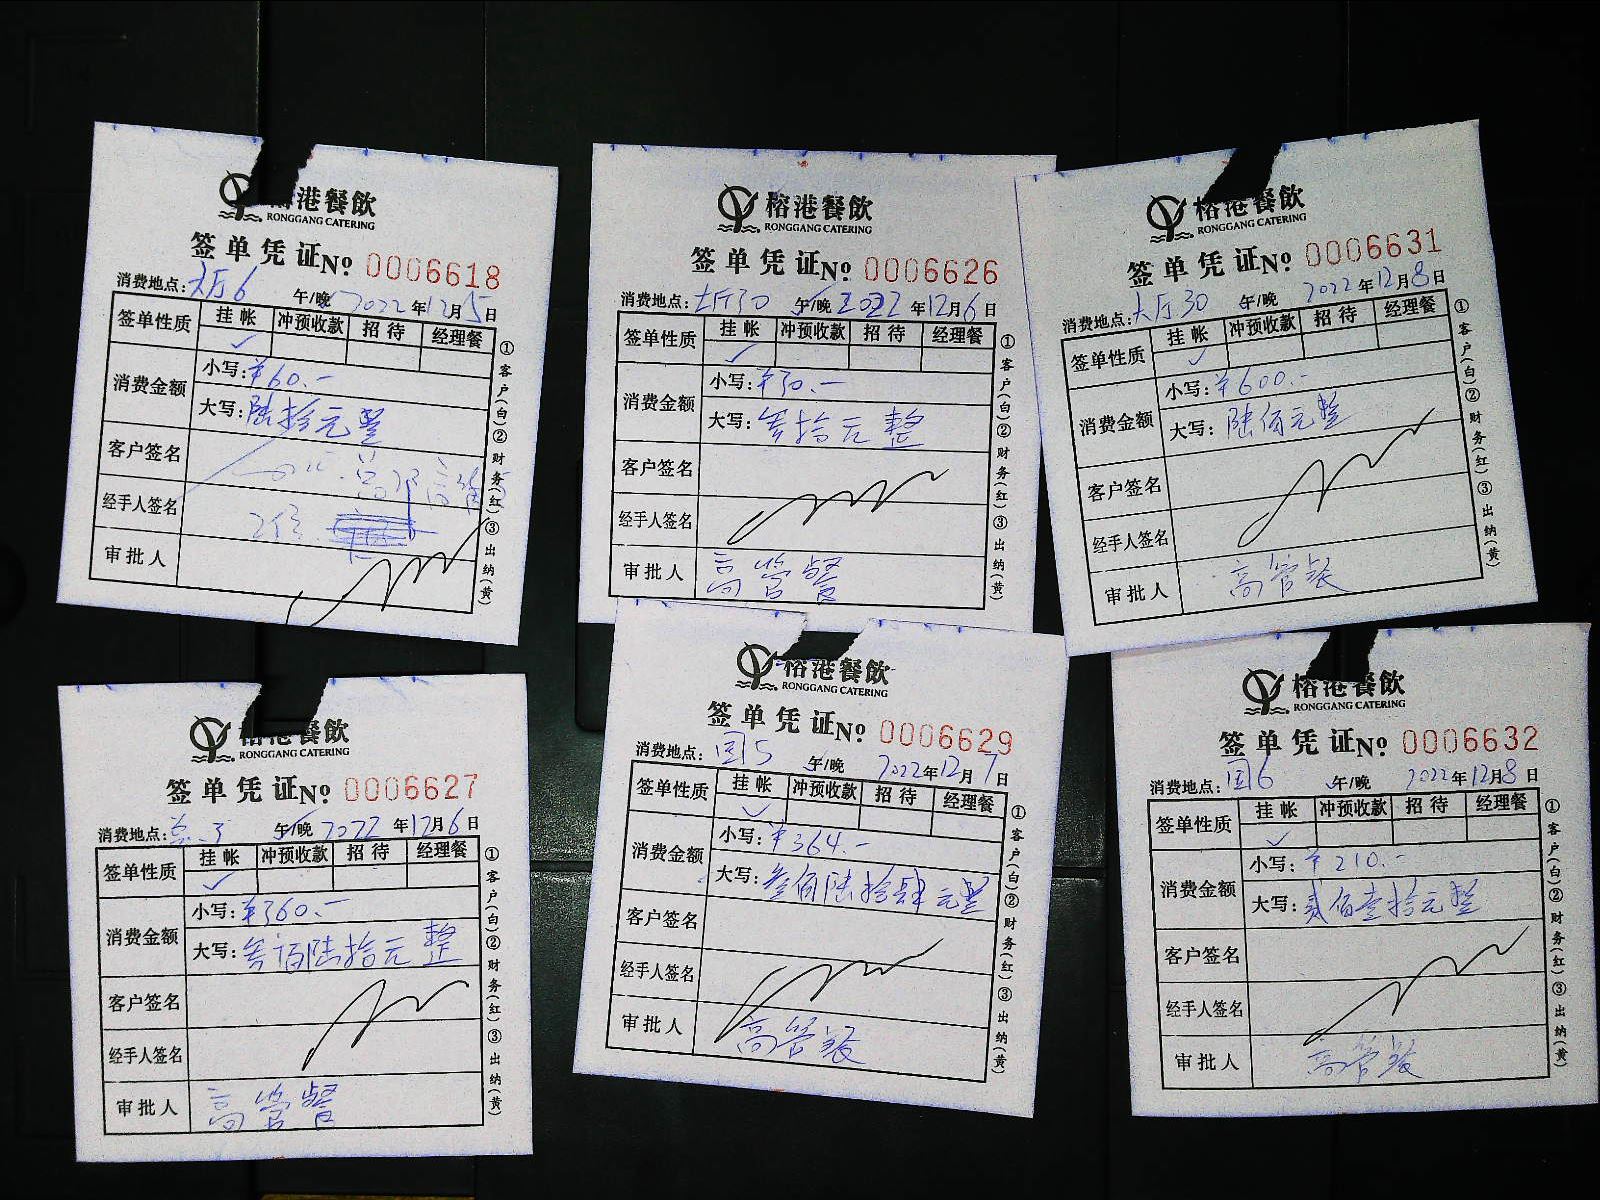 榕港餐飲
RONGGANG CATERING
签单凭证No 0006618
消费地点:大厅6 午/晚 2022年12月5日
签单性质 挂帐 冲预收款 招待 经理餐
✓
消费金额 小写:¥60.-
大写:陆拾元整
客户签名
经手人签名
审批人
①客户(白)②财务(红)③出纳(黄)
榕港餐飲
RONGGANG CATERING
签单凭证No 0006626
消费地点:大厅30 午/晚 2022年12月6日
签单性质 挂帐 冲预收款 招待 经理餐
✓
消费金额 小写:¥30.-
大写:叁拾元整
客户签名
经手人签名
审批人 高管餐
①客户(白)②财务(红)③出纳(黄)
榕港餐飲
RONGGANG CATERING
签单凭证No 0006631
消费地点:大厅30 午/晚 2022年12月8日
签单性质 挂帐 冲预收款 招待 经理餐
✓
消费金额 小写:¥600.-
大写:陆佰元整
客户签名
经手人签名
审批人 高管餐
①客户(白)②财务(红)③出纳(黄)
榕港餐飲
RONGGANG CATERING
签单凭证No 0006627
消费地点: 午/晚 2022年12月6日
签单性质 挂帐 冲预收款 招待 经理餐
✓
消费金额 小写:¥360.-
大写:叁佰陆拾元整
客户签名
经手人签名
审批人 高管餐
①客户(白)②财务(红)③出纳(黄)
榕港餐飲
RONGGANG CATERING
签单凭证No 0006629
消费地点:国5 午/晚 2022年12月7日
签单性质 挂帐 冲预收款 招待 经理餐
✓
消费金额 小写:¥364.-
大写:叁佰陆拾肆元整
客户签名
经手人签名
审批人 高管餐
①客户(白)②财务(红)③出纳(黄)
榕港餐飲
RONGGANG CATERING
签单凭证No 0006632
消费地点:国6 午/晚 2022年12月8日
签单性质 挂帐 冲预收款 招待 经理餐
✓
消费金额 小写:¥210.-
大写:贰佰壹拾元整
客户签名
经手人签名
审批人 高管餐
①客户(白)②财务(红)③出纳(黄)